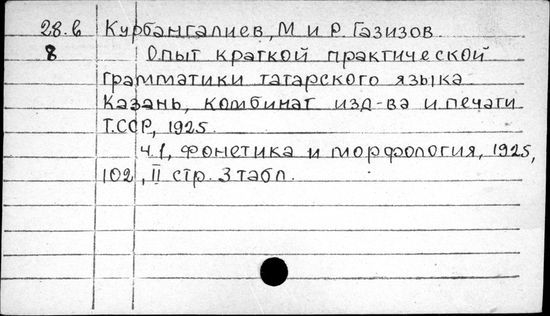 28.в Курбангалиев, М и Р. Газизов.
8 Опыт краткой практической
грамматики татарского языка
Казань, комбинат изд-ва и печати
Т.ССР, 1925.
ч.1, фонетика и морфология, 1925,
102, II стр. 3 табл.